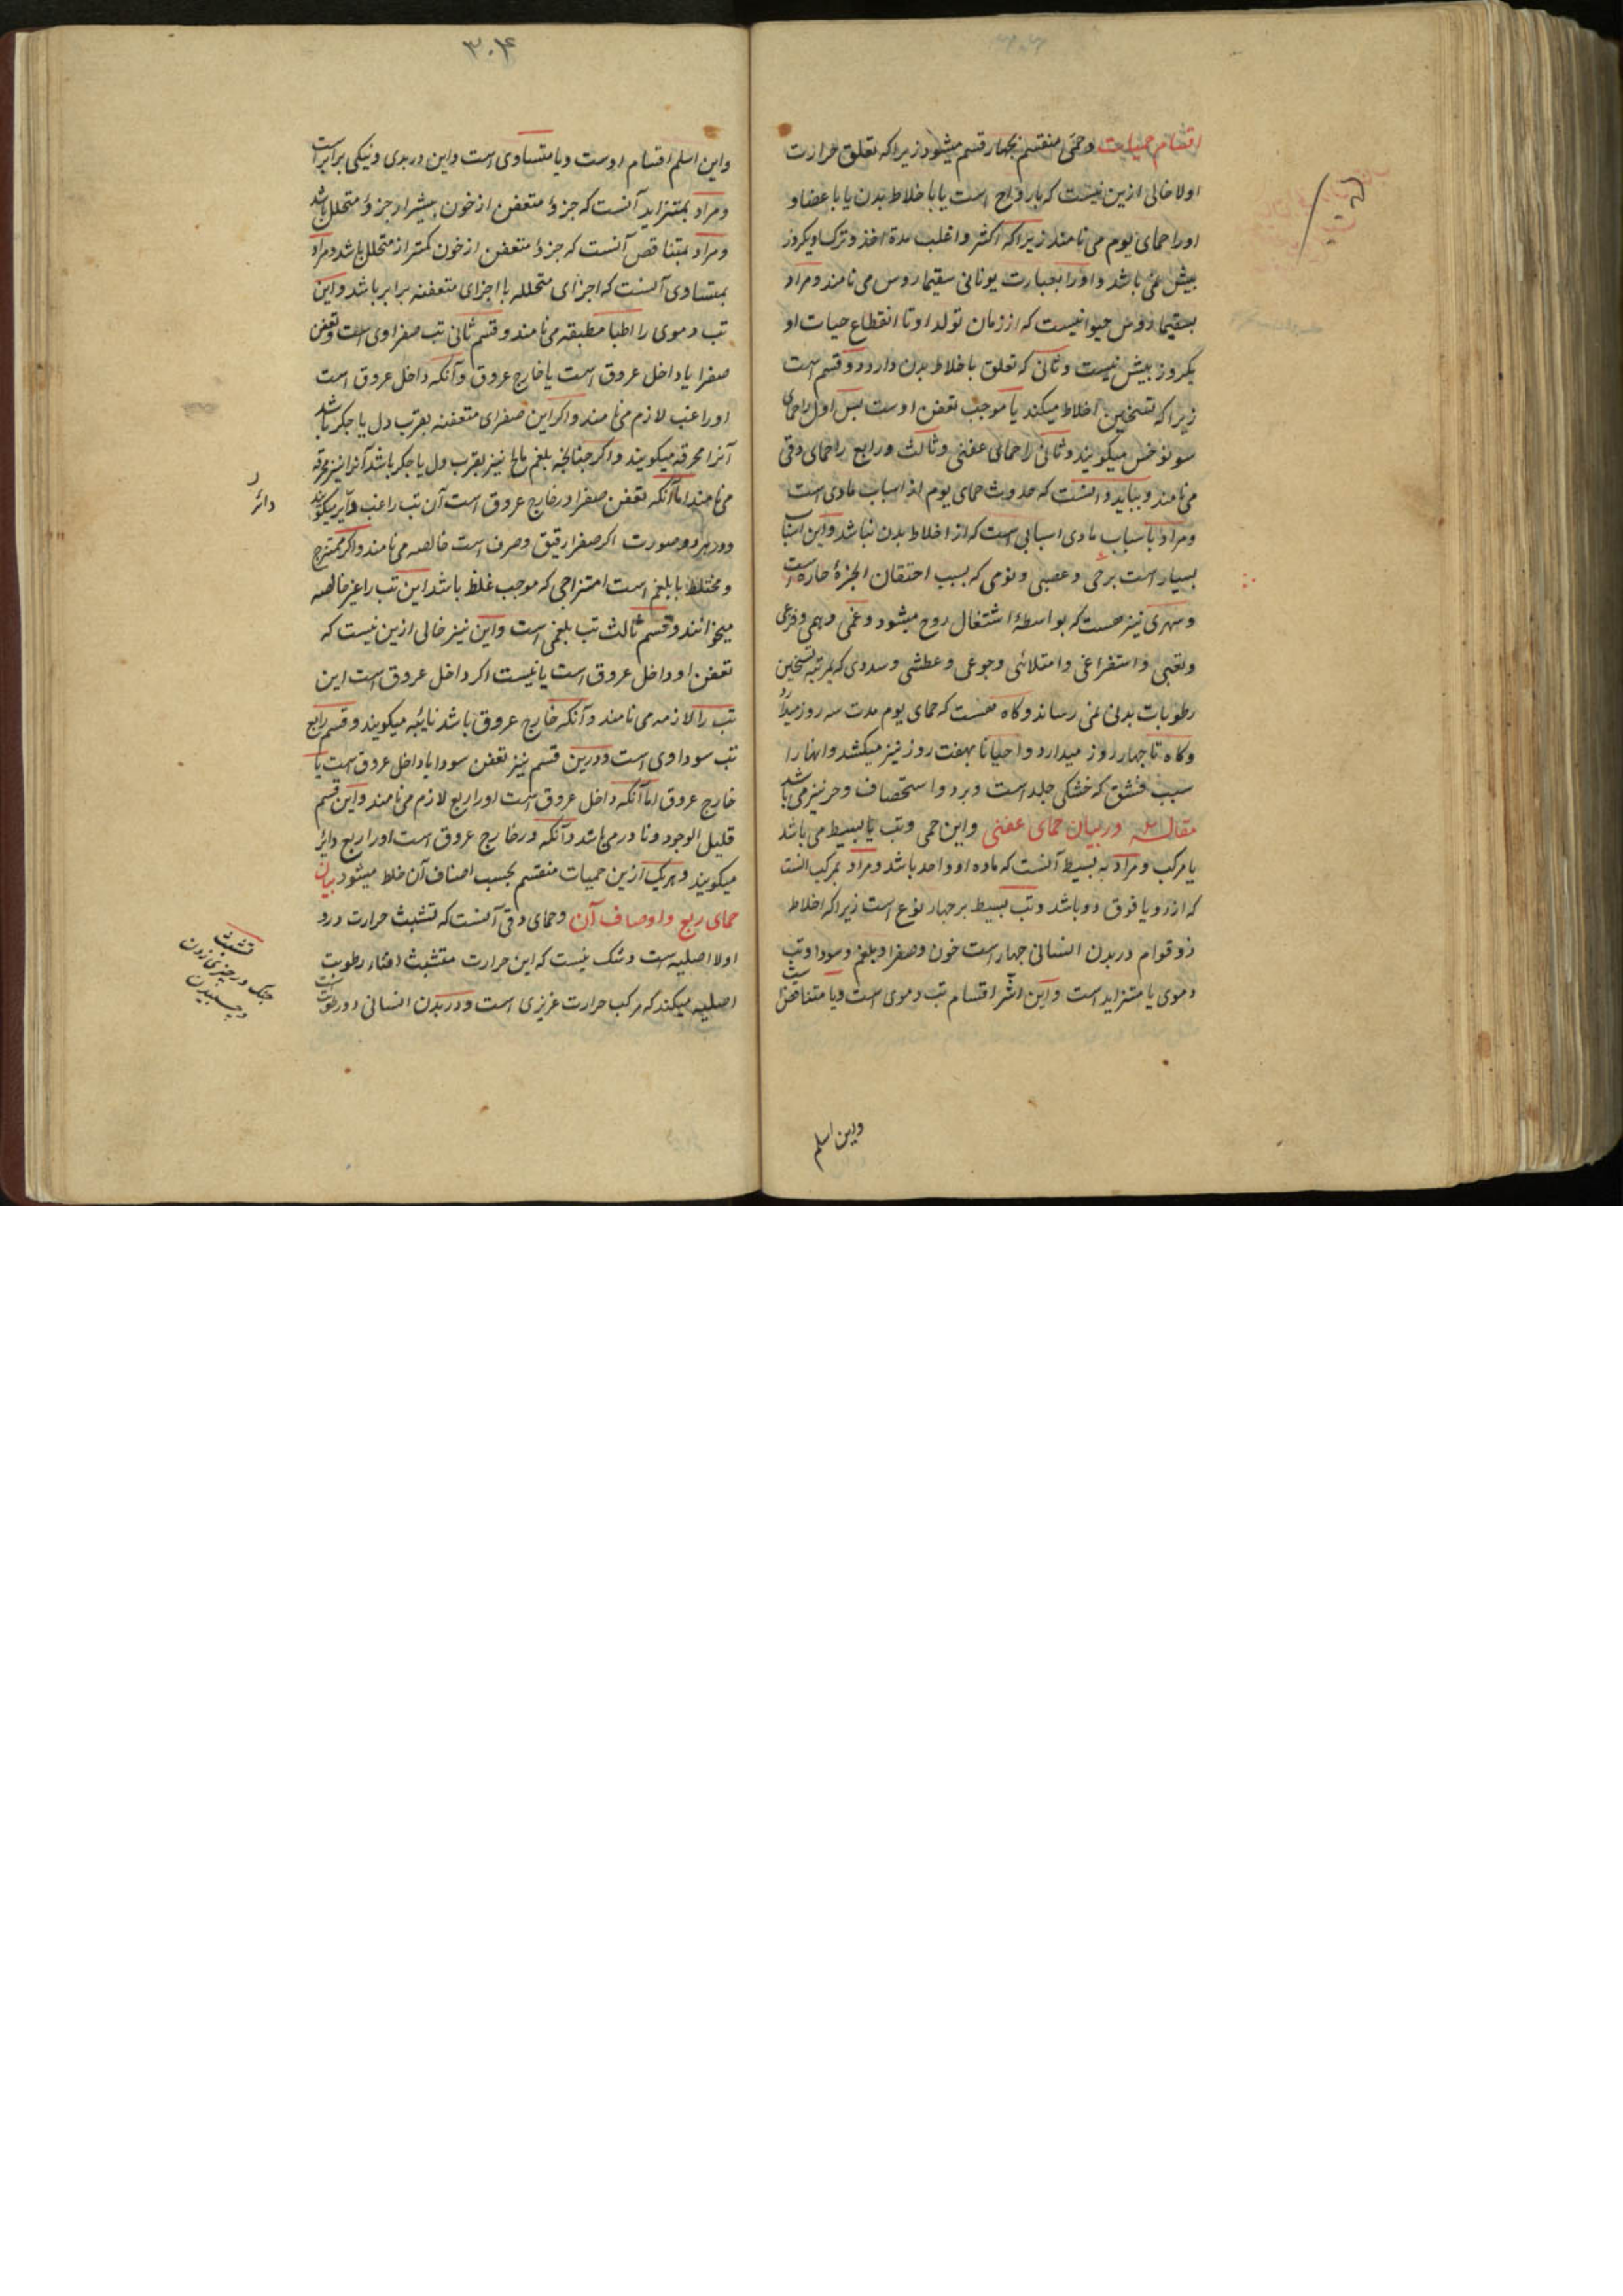 اقسام حمیات وحمی منقسم بچهار قسم میشود زیراکه تعلق حرارت
اولا خالی ازین نیست که بارواح است یا باخلاط بدن یا باعضا و
اورا حمای یوم می نامند زیراکه اکثر واغلب مدة اخذ وترک او یکروز
بیش نمی باشد واورا بعبارت یونانی سقیماروس می نامند ومراد
بسقیماروس حیوانیست که اززمان تولد او تا انقطاع حیات او
یکروز بیش نیست وثانی که تعلق باخلاط بدن دارد دو قسم است
زیراکه تسخین اخلاط میکند یا موجب تعفن اوست پس اول راحمای
سونوخس میکویند وثانی راحمای عفنی وثالث ورابع راحمای دقی
می نامند وبباید دانست که حدوث حمای یوم از اسباب بادی است
ومراد باسباب بادی اسبابی است که از اخلاط بدن نباشد واین اسباب
بسیار است برحی وغضبی ونومی که بسبب احتقان ابخرۀ حاره است
وسهری نیز هست که بواسطۀ اشتغال روح میشود وغمی وهمی وفزعی
وتعبی واستفراغی وامتلائی وجوعی وعطشی وسددی که بمرتبه تسخین
رطوبات بدنی نمی رساند وکاه هست که حمای یوم مدت سه روز میدارد
وکاه تا چهار روز میدارد واحیانا بهفت روز نیز میکشد وانها را
سبب قشق که خشکی جلد است وبرد واستحصاف وحر نیز می باشد
مقاله در بیان حمای عفنی واین حمی وتب یا بسیط می باشد
یا مرکب ومراد به بسیط آنست که ماده او واحد باشد ومراد بمرکب آنست
که از دو یا فوق دو باشد وتب بسیط بر چهار نوع است زیراکه اخلاط
ذوقوام در بدن انسانی چهار است خون وصفرا وبلغم وسودا وتب
دموی یا متزاید است واین اشر اقسام تب دموی است ویا متناقص است
واین اسلم
۳۰۴
واین اسلم اقسام اوست ویا متساوی است واین در بدی ونیکی برابر است
ومراد بمتزاید آنست که جزؤ متعفن از خون بیشتر از جزؤ متحلل باشد
ومراد بمتناقص آنست که جزؤ متعفن از خون کمتر از متحلل باشد ومراد
بمتساوی آنست که اجزای متحلله با اجزای متعفنه برابر باشد واین
تب دموی را اطبا مطبقه می نامند وقسم ثانی تب صفراوی است وتعفن
صفرا یا داخل عروق است یا خارج عروق وآنکه داخل عروق است
اورا غب لازم می نامند واکر این صفرای متعفنه بقرب دل یا جکر باشد
آنرا محرقه میکویند واکر چنانچه بلغم مالح نیز بقرب دل یا جکر باشد آنرا نیز محرقه
می نامند اما آنکه تعفن صفرا در خارج عروق است آن تب را غب دایر میکویند
ودر هر دو صورت اکر صفرا رقیق وصرف است خالصه می نامند واکر ممتزج
ومختلط با بلغم است امتزاجی که موجب غلظ باشد این تب را غیر خالصه
میخوانند وقسم ثالث تب بلغمی است واین نیز خالی ازین نیست که
تعفن او داخل عروق است یا نیست اکر داخل عروق است این
تب را لازمه می نامند وآنکه خارج عروق باشد نایبه میکویند وقسم رابع
تب سوداوی است ودرین قسم نیز تعفن سودا یا داخل عروق است یا
خارج عروق اما آنکه داخل عروق است اورا ربع لازم می نامند واین قسم
قلیل الوجود ونادر می باشد وآنکه در خارج عروق است اورا ربع دایر
میکویند وهریک ازین حمیات منقسم بحسب اصناف آن خلط میشود بیان
حمای ربع واوصاف آن وحمای دقی آنست که تشبث حرارت درو
اولا اصلیه است وشک نیست که این حرارت متشبث افناء رطوبت
اصلیه میکند که مرکب حرارت غریزی است ودر بدن انسانی دو رطوبت است
دائر
تشبث
چنک در چیزی زدن
وچسبیدن